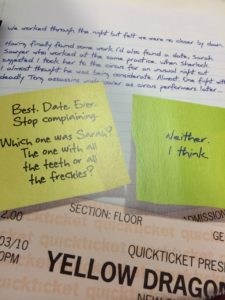 We worked through the night but felt we were no closer by dawn.
Having finally found some work, I'd also found a date. Sarah
Sawyer who worked at the same practice. When Sherlock
suggested I took her to the circus for an unusual night out
I almost thought he was being considerate. Almost. One fight with
deadly Tong assassins undercover as circus performers later...
Best. Date. Ever.
Stop complaining.
Which one was Sarah?
The one with all
the teeth or all
the freckles?
Neither.
I think.
2.00
SECTION: FLOOR
ADMISSION
GE
/03/10
0PM
quickticket
QUICKTICKET PRES
YELLOW DRAGON